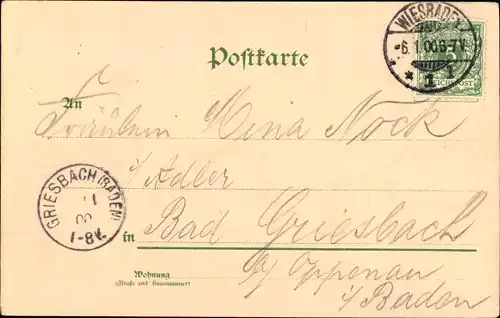 WIESBADEN
6.1.00.6-7V.
1
REICHSPOST
Postkarte
An
Fräulein Mina Nock
i/ Adler
GRIESBACH (BADEN)
1-8V.
in Bad Griesbach
b/ Oppenau
i/ Baden
Wohnung
(Straße und Hausnummer)